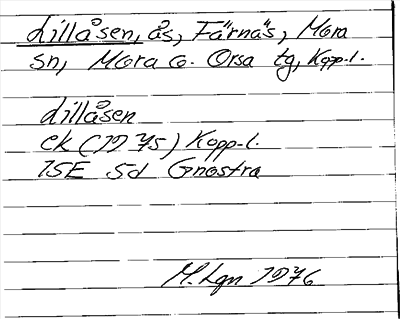 Lillåsen, ås, Färnäs, Mora
sn, Mora o. Orsa tg, Kopp.l.
Lillåsen
ek (1975) Kopp.l.
13E 5d Gnostra
M. Lgn 1976